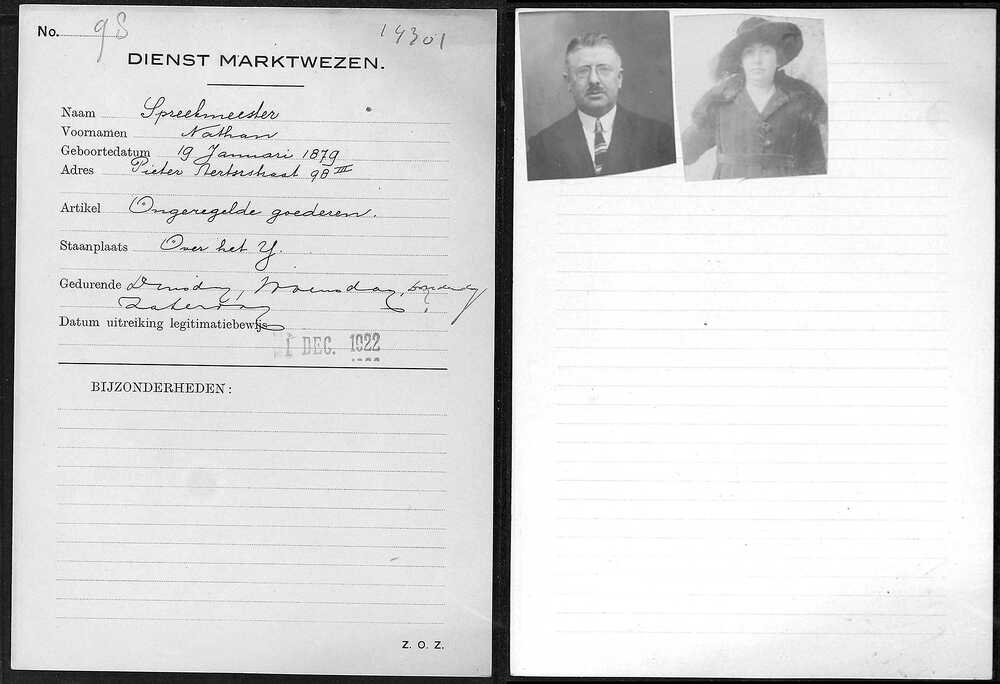 No. 98 14301
DIENST MARKTWEZEN.
Naam Spreekmeester
Voornamen Nathan
Geboortedatum 19 Januari 1879
Adres Pieter Aertszstraat 98 III
Artikel Ongeregelde goederen.
Staanplaats Over het Y.
Gedurende Dinsdag, Woensdag, Donderdag,
Zaterdag
Datum uitreiking legitimatiebewijs
1 DEC. 1922
BIJZONDERHEDEN:
Z. O. Z.